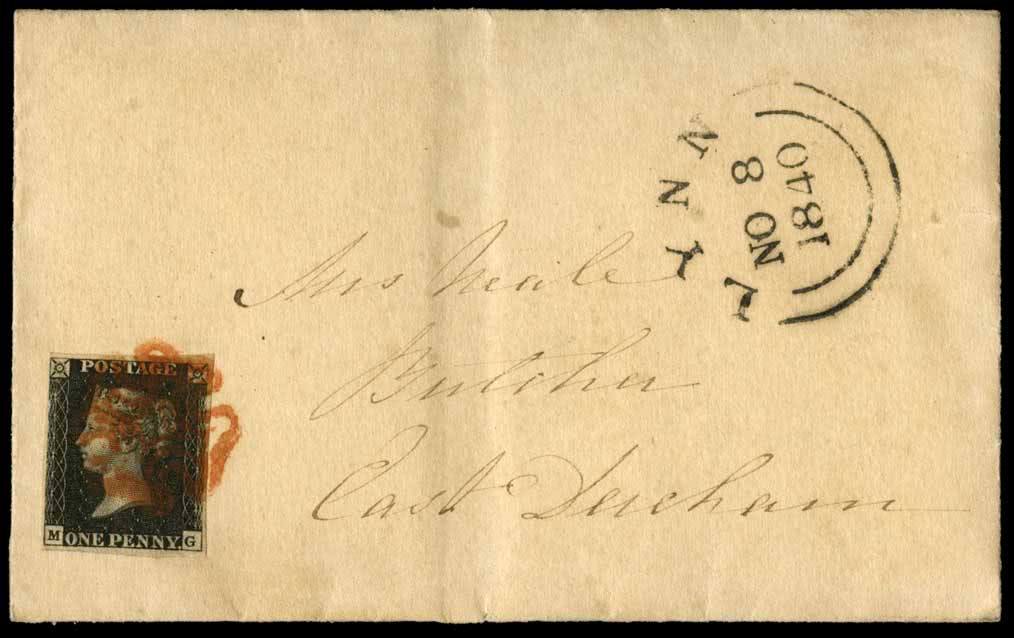 LYNN
NO 8
1840
Mrs Neale
Butcher
East Dereham
POSTAGE
M ONE PENNY G